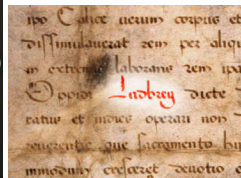 ipo Calice uerum corpus et
Dissimulauerat rem per aliq
in extremis laborans rem ipa
Oppidi Ludbreg dicte
catus et iudices operari non
reuerentie que sacramento hu
mmodum cresceret deuotio